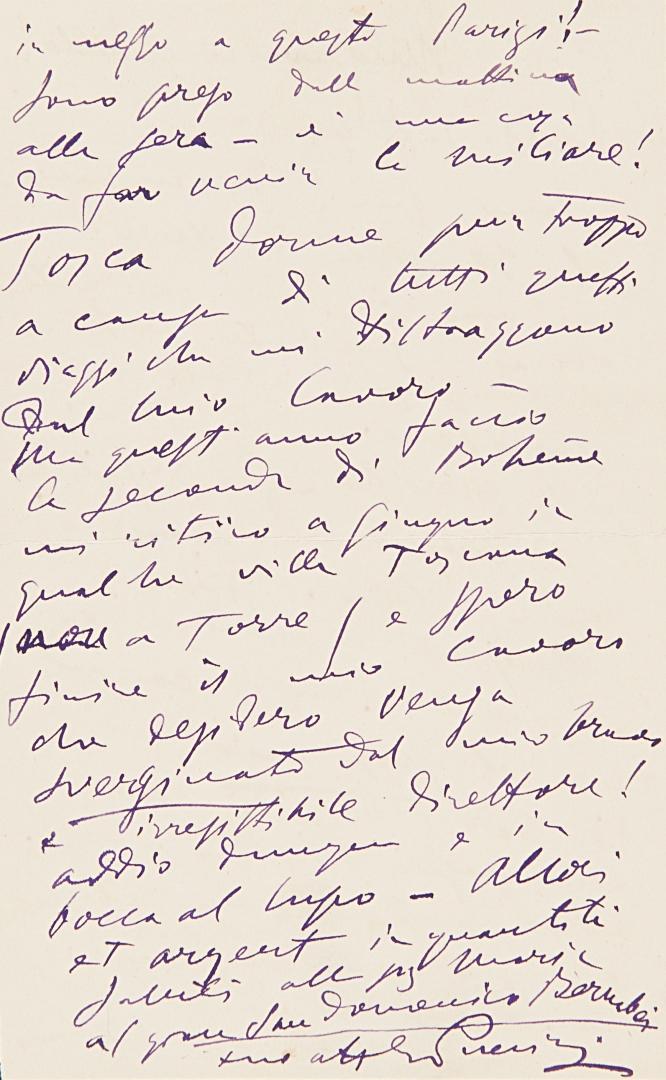 in mezzo a questo Parigi!—
Sono preso dalla mattina
alla sera — è una cosa
da far venir la migliare!
Tosca dorme pur troppo
a causa di tutti questi
viaggi che mi distraggono
dal mio lavoro —
Ma quest'anno faccio
la seconda di Bohème
mi ritiro a giugno in
qualche villa Toscana
(non a Torre) e spero
finire il mio lavoro
che desidero venga
sverginato dal mio bravo
e irresistibile direttore!
addio dunque e in
bocca al lupo —
et argent in quantità
saluti alla sig Maria
al gran San Domenico
tuo aff Puccini